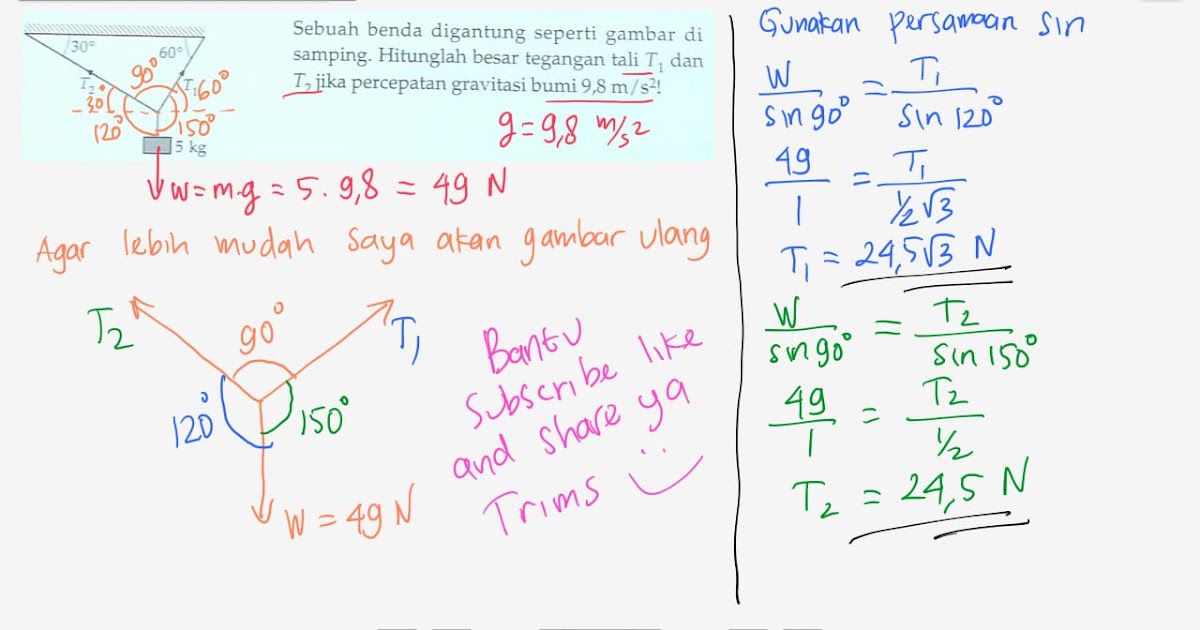 Sebuah benda digantung seperti gambar di
samping. Hitunglah besar tegangan tali T₁ dan
T₂ jika percepatan gravitasi bumi 9,8 m/s²!
30°
60°
90°
T₂
T₁
60°
30
120°
150°
5 kg
g = 9,8 m/s²
W = m.g = 5 . 9,8 = 49 N
Agar lebih mudah saya akan gambar ulang
T₂
90°
T₁
120°
150°
W = 49 N
Bantu
subscribe like
and share ya
Trims
Gunakan persamaan sin
W/sin 90° = T₁/sin 120°
49/1 = T₁/½√3
T₁ = 24,5√3 N
W/sin 90° = T₂/sin 150°
49/1 = T₂/½
T₂ = 24,5 N